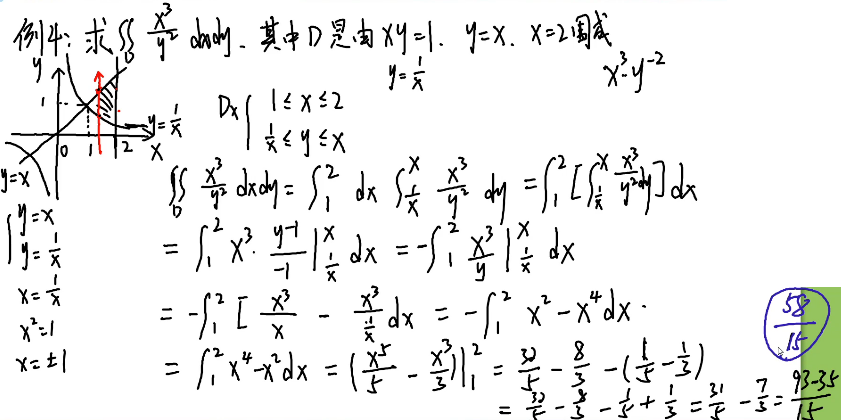 例4: 求∬_D x³/y² dxdy. 其中D是由 xy=1. y=x. x=2围成
y=1/x
x³·y⁻²
y
1
0 1 2 x
y=1/x
y=x
Dx { 1≤x≤2
1/x ≤ y ≤ x
∬_D x³/y² dxdy = ∫₁² dx ∫_{1/x}^{x} x³/y² dy = ∫₁² [∫_{1/x}^{x} x³/y² dy] dx
= ∫₁² x³· y-1/-1 |_{1/x}^{x} dx = -∫₁² x³/y |_{1/x}^{x} dx
= -∫₁² [ x³/x - x³/(1/x) dx = -∫₁² x²-x⁴dx.
= ∫₁² x⁴-x²dx = (x⁵/5 - x³/3)|₁² = 32/5 - 8/3 - (1/5 - 1/3)
= 32/5 - 8/3 - 1/5 + 1/3 = 31/5 - 7/3 = 93-35/15
58/15
{ y=x
y=1/x
x=1/x
x²=1
x=±1